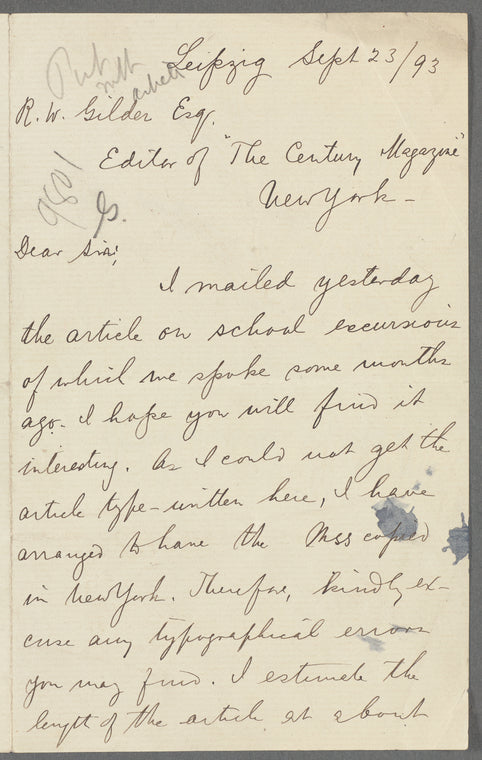 Leipzig Sept 23/93
R. W. Gilder Esq.
Editor of "The Century Magazine"
New York -
9801
G.
Dear Sir;
I mailed yesterday
the article on school excursions
of which we spoke some months
ago. I hope you will find it
interesting. As I could not get the
article type-written here, I have
arranged to have the Mss copied
in New York. Therefore, kindly ex-
cuse any typographical errors
you may find. I estimate the
length of the article at about